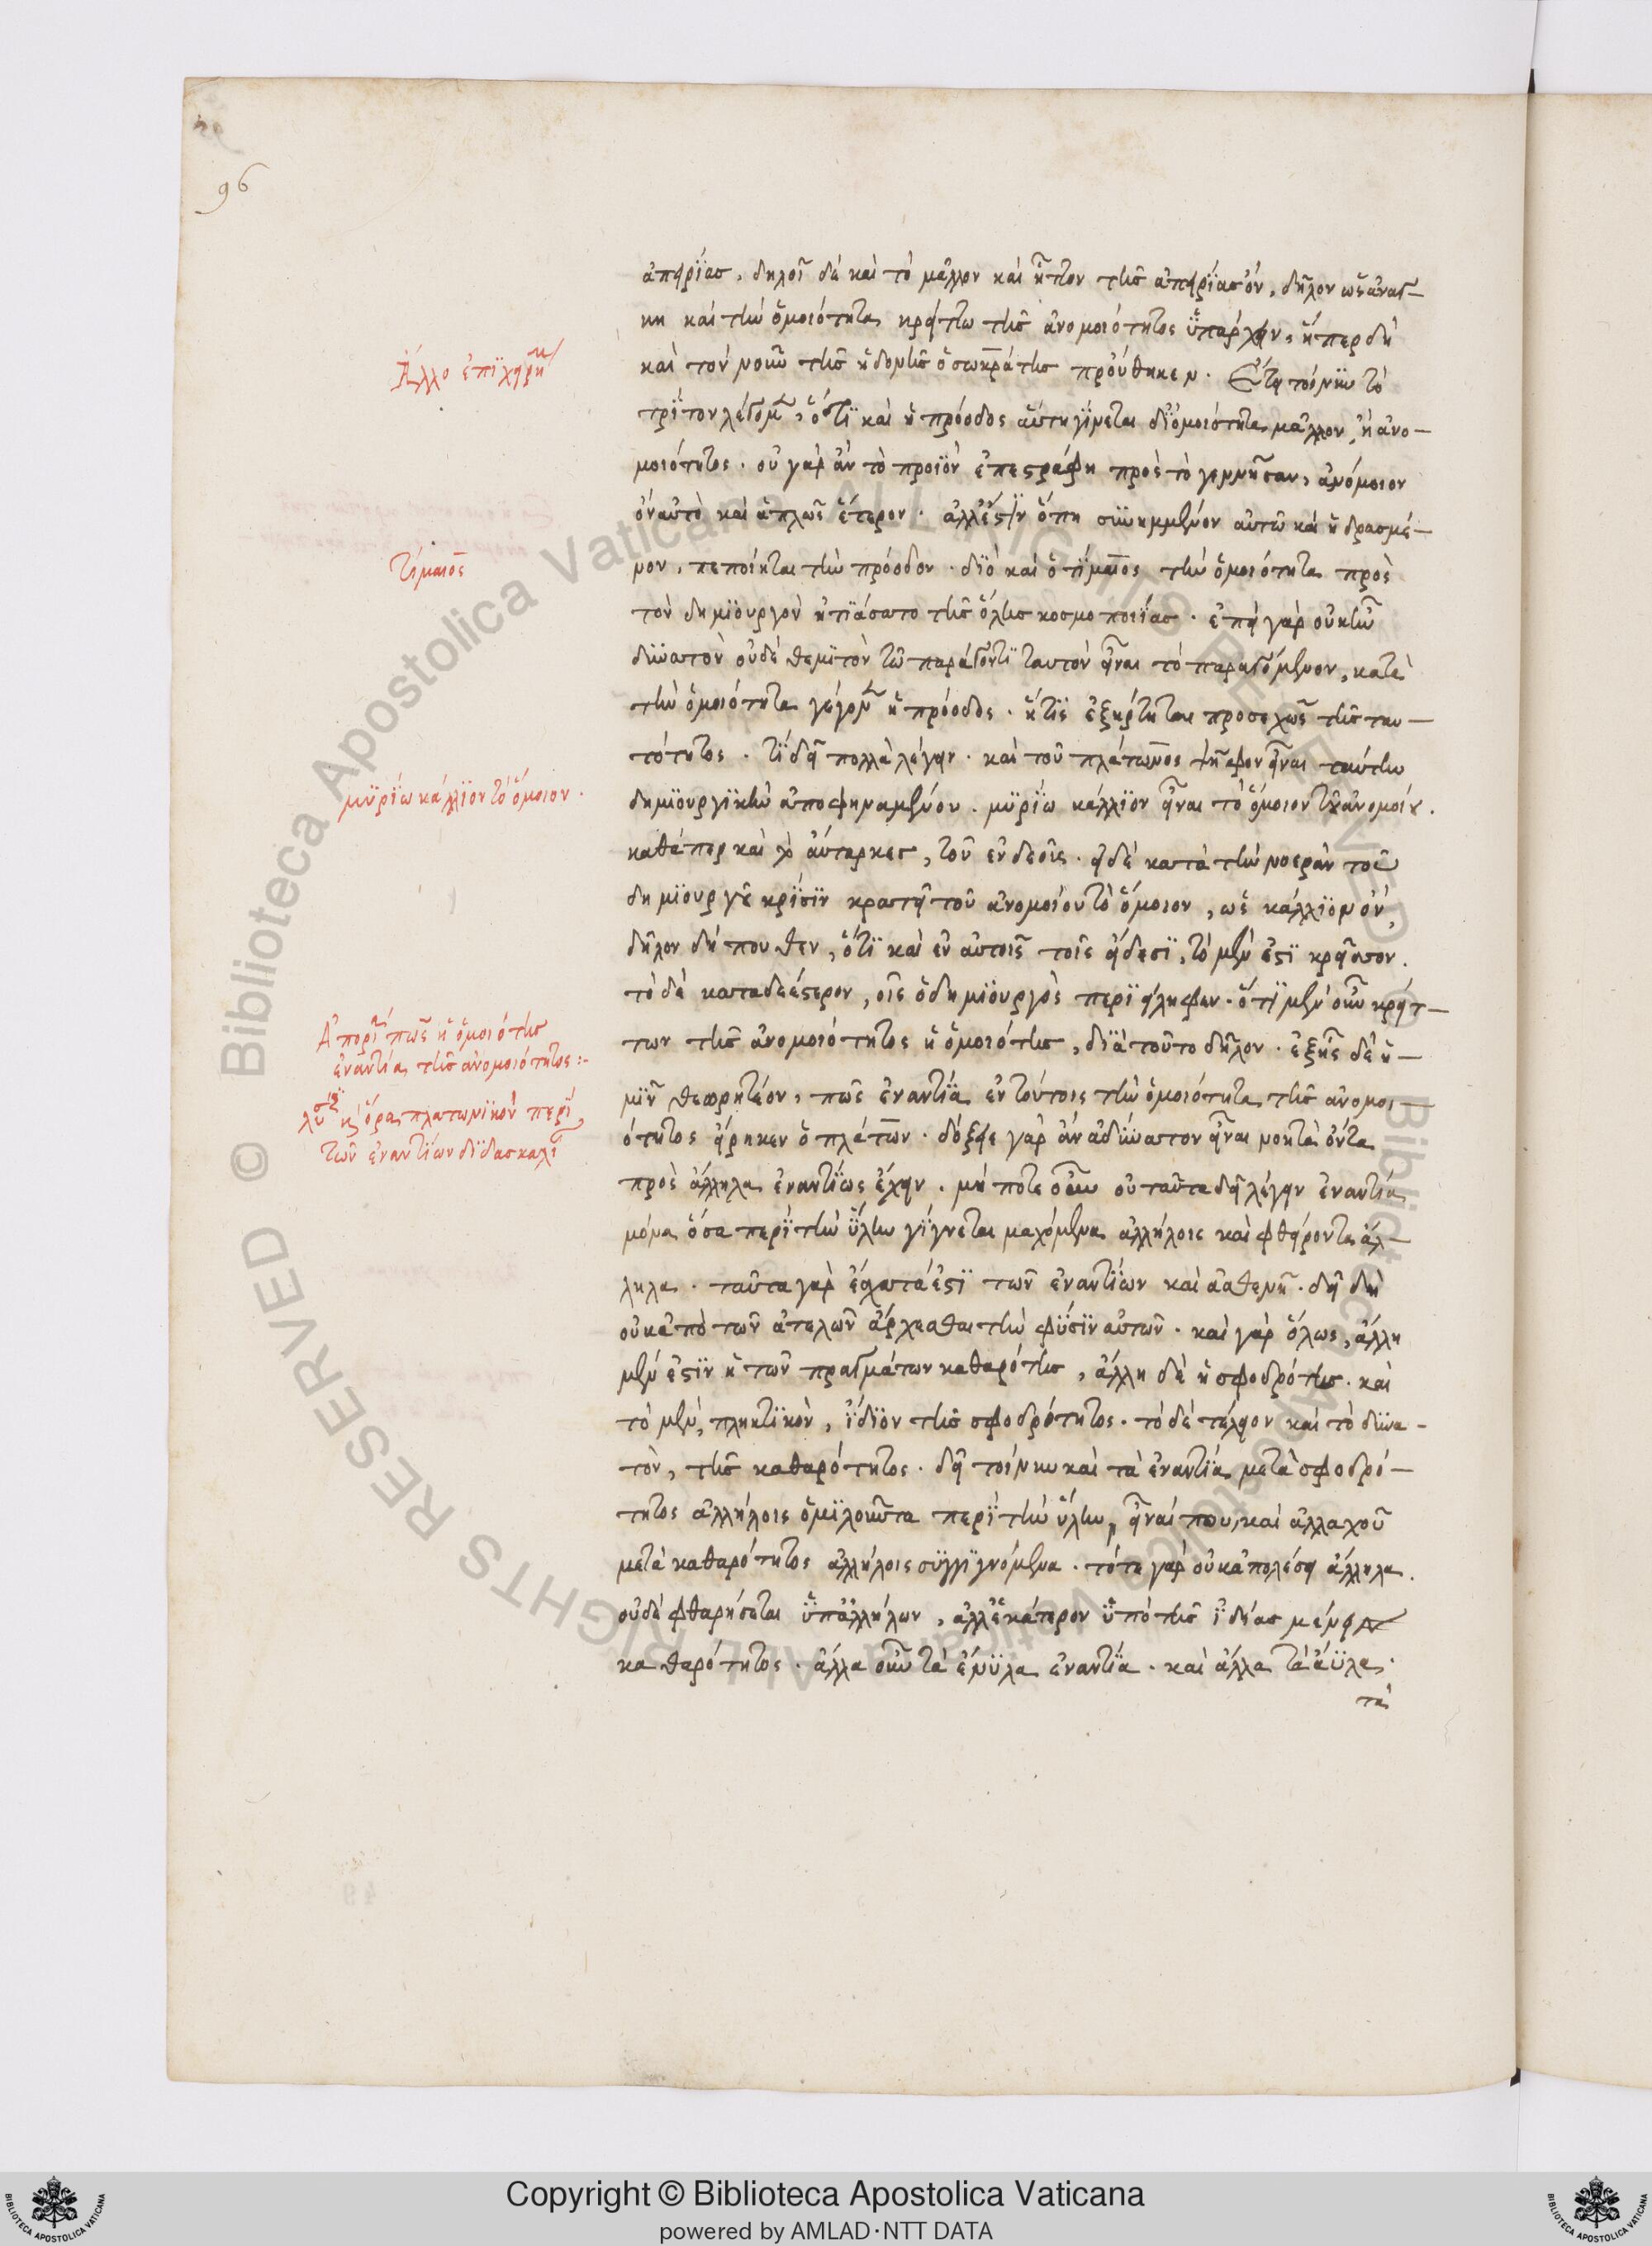 96
ἀπειρίας, δηλοῖ δὲ καὶ τὸ μᾶλλον καὶ ἧττον τῆς ἀπειρίας ὄν, δῆλον ὡς ἀνάγ-
κη καὶ τὴν ὁμοιότητα κρείττω τῆς ἀνομοιότητος ὑπάρχειν, ᾗπερ δὴ
καὶ τὸν νοῦν τῆς ἡδονῆς ὁ σωκράτης προύθηκεν. Ἔτι τοίνυν τὸ
Ἄλλο ἐπιχείρη
τρίτον λέγομεν, ὅτι καὶ ἡ πρόοδος αὕτη γίνεται δι' ὁμοιότητα μᾶλλον, ἢ ἀνο-
μοιότητος. οὐ γὰρ ἂν τὸ προϊὸν ἐπεστράφη πρὸς τὸ γεννῆσαν, ἀνόμοιον
ὂν αὐτὸ καὶ ἁπλῶς ἕτερον. ἀλλ' ἔστιν ὅπη συνηνωμένον αὐτῶ καὶ ἡδρασμέ-
νον, πεποίηται τὴν πρόοδον. διὸ καὶ ὁ τίμαιος τὴν ὁμοιότητα πρὸς
Τίμαιος
τὸν δημιουργὸν ᾐτιάσατο τῆς ὅλης κοσμοποιίας. ἐπεὶ γὰρ οὐκ ἦν
δυνατὸν οὐδὲ θεμιτὸν τῶ παράγοντι ταυτὸν εἶναι τὸ παραγόμενον, κατὰ
τὴν ὁμοιότητα γέγονεν ἡ πρόοδος. ἥτις ἐξήρτηται προσεχῶς τῆς ταυ-
τότητος. τί δεῖ πολλὰ λέγειν. καὶ τοῦ πλάτωνος ψῆφον εἶναι ταύτην
δημιουργικὴν ἀποφηναμένου. μυρίω κάλλιον εἶναι τὸ ὅμοιον τοῦ ἀνομοίου.
μυρίω κάλλιον τὸ ὅμοιον.
καθάπερ καὶ τὸ αὔταρκες, τοῦ ἐνδεοῦς. εἰ δὲ κατὰ τὴν νοερὰν τοῦ
δημιουργοῦ κρίσιν κρατεῖ τοῦ ἀνομοίου τὸ ὅμοιον, ὡς κάλλιον ὂν,
δῆλον δήπουθεν, ὅτι καὶ ἐν αὐτοῖς τοῖς εἴδεσι, τὸ μέν ἐστι κρεῖσσον.
τὸ δὲ καταδεέστερον, οἷς ὁ δημιουργὸς περιείληφεν. ὅτι μὲν οὖν κρείτ-
των τῆς ἀνομοιότητος ἡ ὁμοιότης, διὰ τοῦτο δῆλον. ἐξῆς δὲ ἡ-
Ἀπορία πῶς ἡ ὁμοιότης
ἐναντία τῆς ἀνομοιότητος:-
μῖν θεωρητέον, πῶς ἐναντία ἐν τούτοις τὴν ὁμοιότητα τῆς ἀνομοι-
λύσις ὅρα πλατωνικὸν περὶ
τῶν ἐναντίων διδασκαλί
ότητος εἴρηκεν ὁ πλάτων. δόξειε γὰρ ἂν ἀδύνατον εἶναι νοητὰ ὄντα
πρὸς ἄλληλα ἐναντίως ἔχειν. μή ποτε οὖν οὐ ταῦτα δεῖ λέγειν ἐναντία
μόνα ὅσα περὶ τὴν ὕλην γίγνεται μαχόμενα ἀλλήλοις καὶ φθείροντα ἄλ-
ληλα. ταῦτα γὰρ ἔσχατά ἐστι τῶν ἐναντίων καὶ ἀσθενῆ. δεῖ δὲ
οὐκ ἀπὸ τῶν ἀτελῶν ἄρχεσθαι τὴν φύσιν αὐτῶν. καὶ γὰρ ὅλως, ἄλλη
μέν ἐστιν ἡ τῶν πραγμάτων καθαρότης, ἄλλη δὲ ἡ σφοδρότης. καὶ
τὸ μὲν, πληκτικὸν, ἴδιον τῆς σφοδρότητος. τὸ δὲ τέλειον καὶ τὸ δυνα-
τὸν, τῆς καθαρότητος. δεῖ τοίνυν καὶ τὰ ἐναντία μετὰ σφοδρό-
τητος ἀλλήλοις ὁμιλοῦντα περὶ τὴν ὕλην, εἶναί που καὶ ἀλλαχοῦ
μετὰ καθαρότητος ἀλλήλοις συγγιγνόμενα. τότε γὰρ οὐκ ἀπολέσει ἄλληλα.
οὐδὲ φθαρήσεται ὑπ' ἀλλήλων, ἀλλ' ἑκάτερον ὑπὸ τῆς ἰδίας μένει
καθαρότητος. ἄλλα οὖν τὰ ἔνυλα ἐναντία. καὶ ἄλλα τὰ ἄϋλα.
τὰ
Copyright © Biblioteca Apostolica Vaticana
powered by AMLAD·NTT DATA
© Biblioteca Apostolica Vaticana ALL RIGHTS RESERVED